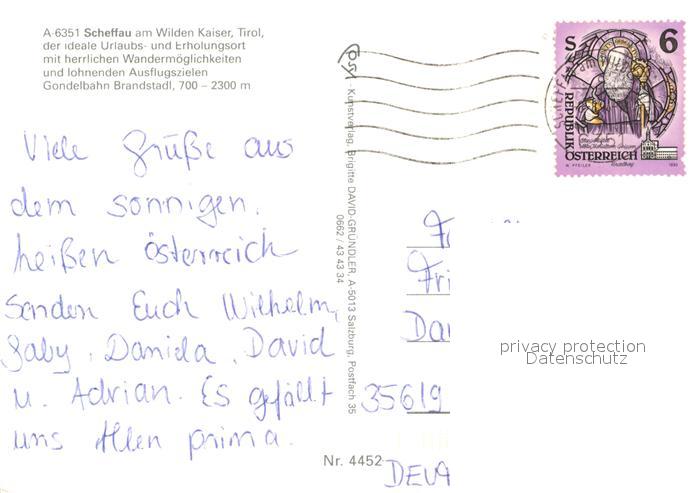 A-6351 Scheffau am Wilden Kaiser, Tirol,
der ideale Urlaubs- und Erholungsort
mit herrlichen Wandermöglichkeiten
und lohnenden Ausflugszielen
Gondelbahn Brandstadl, 700 – 2300 m
Viele Grüße aus
dem sonnigen,
heißen Österreich
Senden Euch Wilhelm,
Gaby, Daniela, David
u. Adrian. Es gefällt
uns Allen prima.
Kunstverlag, Brigitte DAVID-GRÜNDLER, A-5013 Salzburg, Postfach 35
0662 / 43 43 34
Nr. 4452
S 6
REPUBLIK
ÖSTERREICH
Fri
Dan
35619
privacy protection
Datenschutz